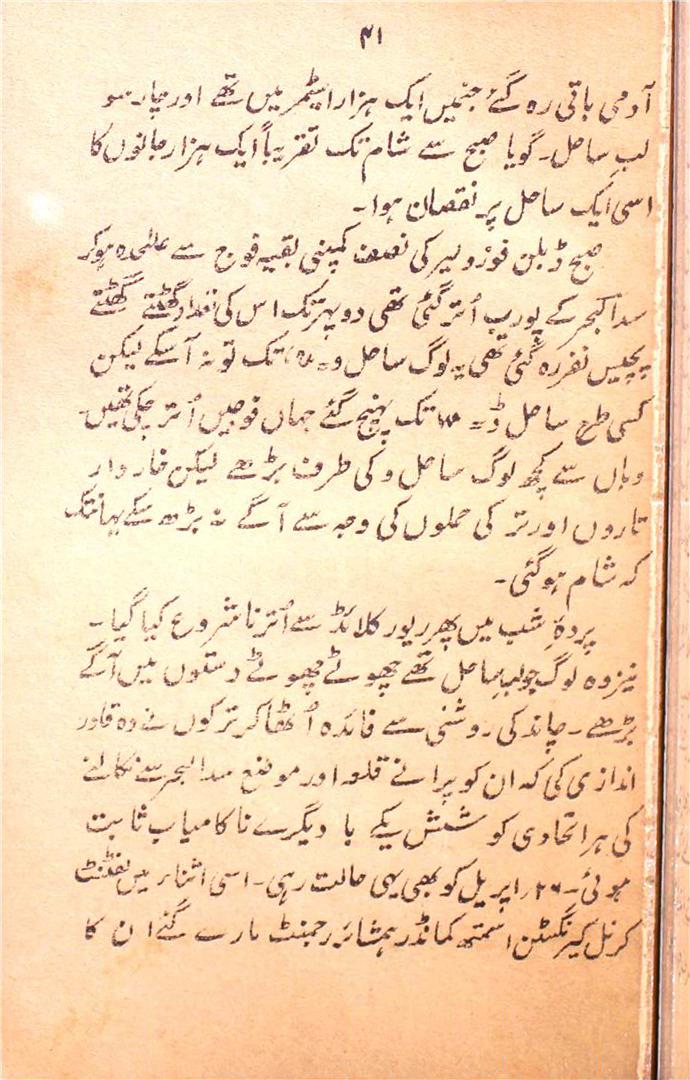 ۴۱
آدمی باقی رہ گئے جنمیں ایک ہزار اسٹیمر میں تھے اور چار سو
لبِ ساحل۔ گویا صبح سے شام تک تقریباً ایک ہزار جانوں کا
اسی ایک ساحل پر نقصان ہوا۔
صبح ڈبلن فوزولیر کی نصف کمپنی بقیہ فوج سے علٰحدہ ہوکر
سدالبحر کے پورب اُتر گئی تھی دوپہر تک اس کی تعداد گھٹتے گھٹتے
پچیس نفر رہ گئی تھی یہ لوگ ساحل و= تک تو نہ آسکے لیکن
کسی طرح ساحل ڈ= تک پہنچ گئے جہاں فوجیں اُتر چکی تھیں۔
وہاں سے کچھ لوگ ساحل و کی طرف بڑھے لیکن خاردار
تاروں اور تر کی حملوں کی وجہ سے آگے نہ بڑھ سکے یہانتک
کہ شام ہوگئی۔
پردۂ شب میں پھر ریور کلائڈ سے اُترنا شروع کیا گیا۔
نیز وہ لوگ جو لبِ ساحل تھے چھوٹے چھوٹے دستوں میں آگے
بڑھے۔ چاند کی روشنی سے فائدہ اُٹھا کر ترکوں نے وہ قادر
اندازی کی کہ ان کو پرانے قلعہ اور موضع سدالبحر سے نکالنے
کی ہر اتحادی کوشش یکے با دیگرے ناکامیاب ثابت
ہوئی۔ ۲۶؍ اپریل کو بھی یہی حالت رہی۔ اسی اثناء میں لفٹنٹ
کرنل کیرنگٹن اسمتھ کمانڈر ہمشائر رجمنٹ مارے گئے ان کا